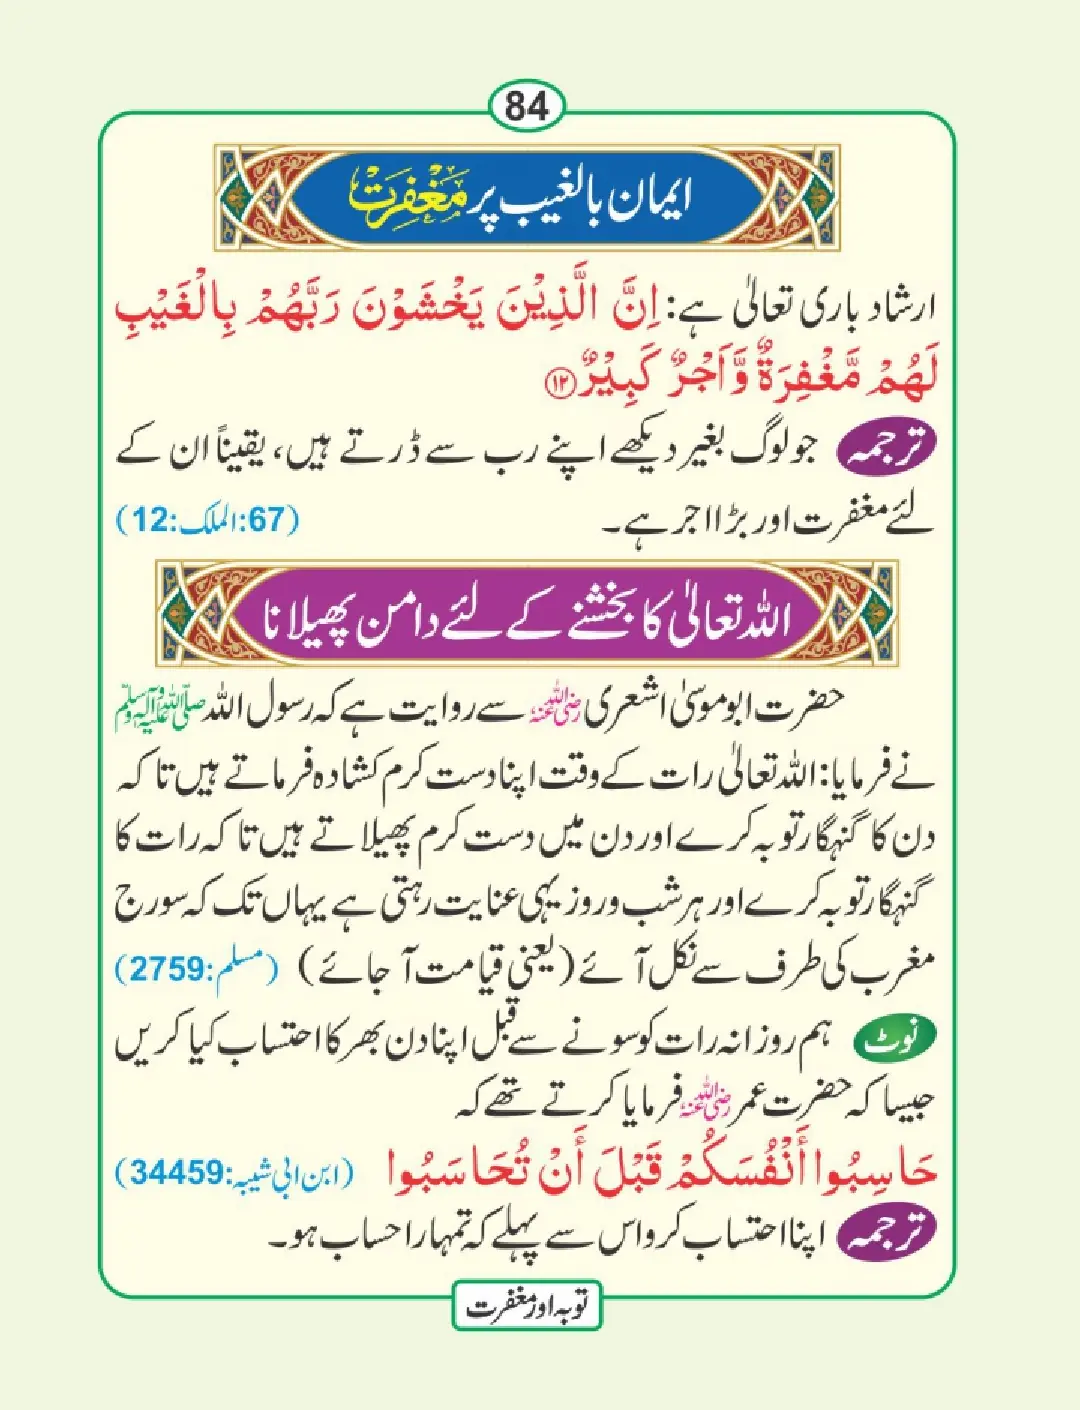 84
ایمان بالغیب پر مغفرت
ارشاد باری تعالیٰ ہے: اِنَّ الَّذِیْنَ یَخْشَوْنَ رَبَّهُمْ بِالْغَیْبِ
لَهُمْ مَّغْفِرَةٌ وَّاَجْرٌ كَبِیْرٌ ۝۱۲
ترجمہ جو لوگ بغیر دیکھے اپنے رب سے ڈرتے ہیں، یقیناً ان کے
لئے مغفرت اور بڑا اجر ہے۔ (67:الملک:12)
اللہ تعالیٰ کا بخشنے کے لئے دامن پھیلانا
حضرت ابو موسیٰ اشعری رضی اللہ عنہ سے روایت ہے کہ رسول اللہ صلی اللہ علیہ وآلہ وسلم
نے فرمایا: اللہ تعالیٰ رات کے وقت اپنا دست کرم کشادہ فرماتے ہیں تا کہ
دن کا گنہگار توبہ کرے اور دن میں دست کرم پھیلاتے ہیں تا کہ رات کا
گنہگار توبہ کرے اور ہر شب و روز یہی عنایت رہتی ہے یہاں تک کہ سورج
مغرب کی طرف سے نکل آئے (یعنی قیامت آ جائے) (مسلم:2759)
نوٹ ہم روزانہ رات کو سونے سے قبل اپنا دن بھر کا احتساب کیا کریں
جیسا کہ حضرت عمر رضی اللہ عنہ فرمایا کرتے تھے کہ
حَاسِبُوا أَنْفُسَكُمْ قَبْلَ أَنْ تُحَاسَبُوا (ابن ابی شیبہ:34459)
ترجمہ اپنا احتساب کرو اس سے پہلے کہ تمہارا حساب ہو۔
توبہ اور مغفرت